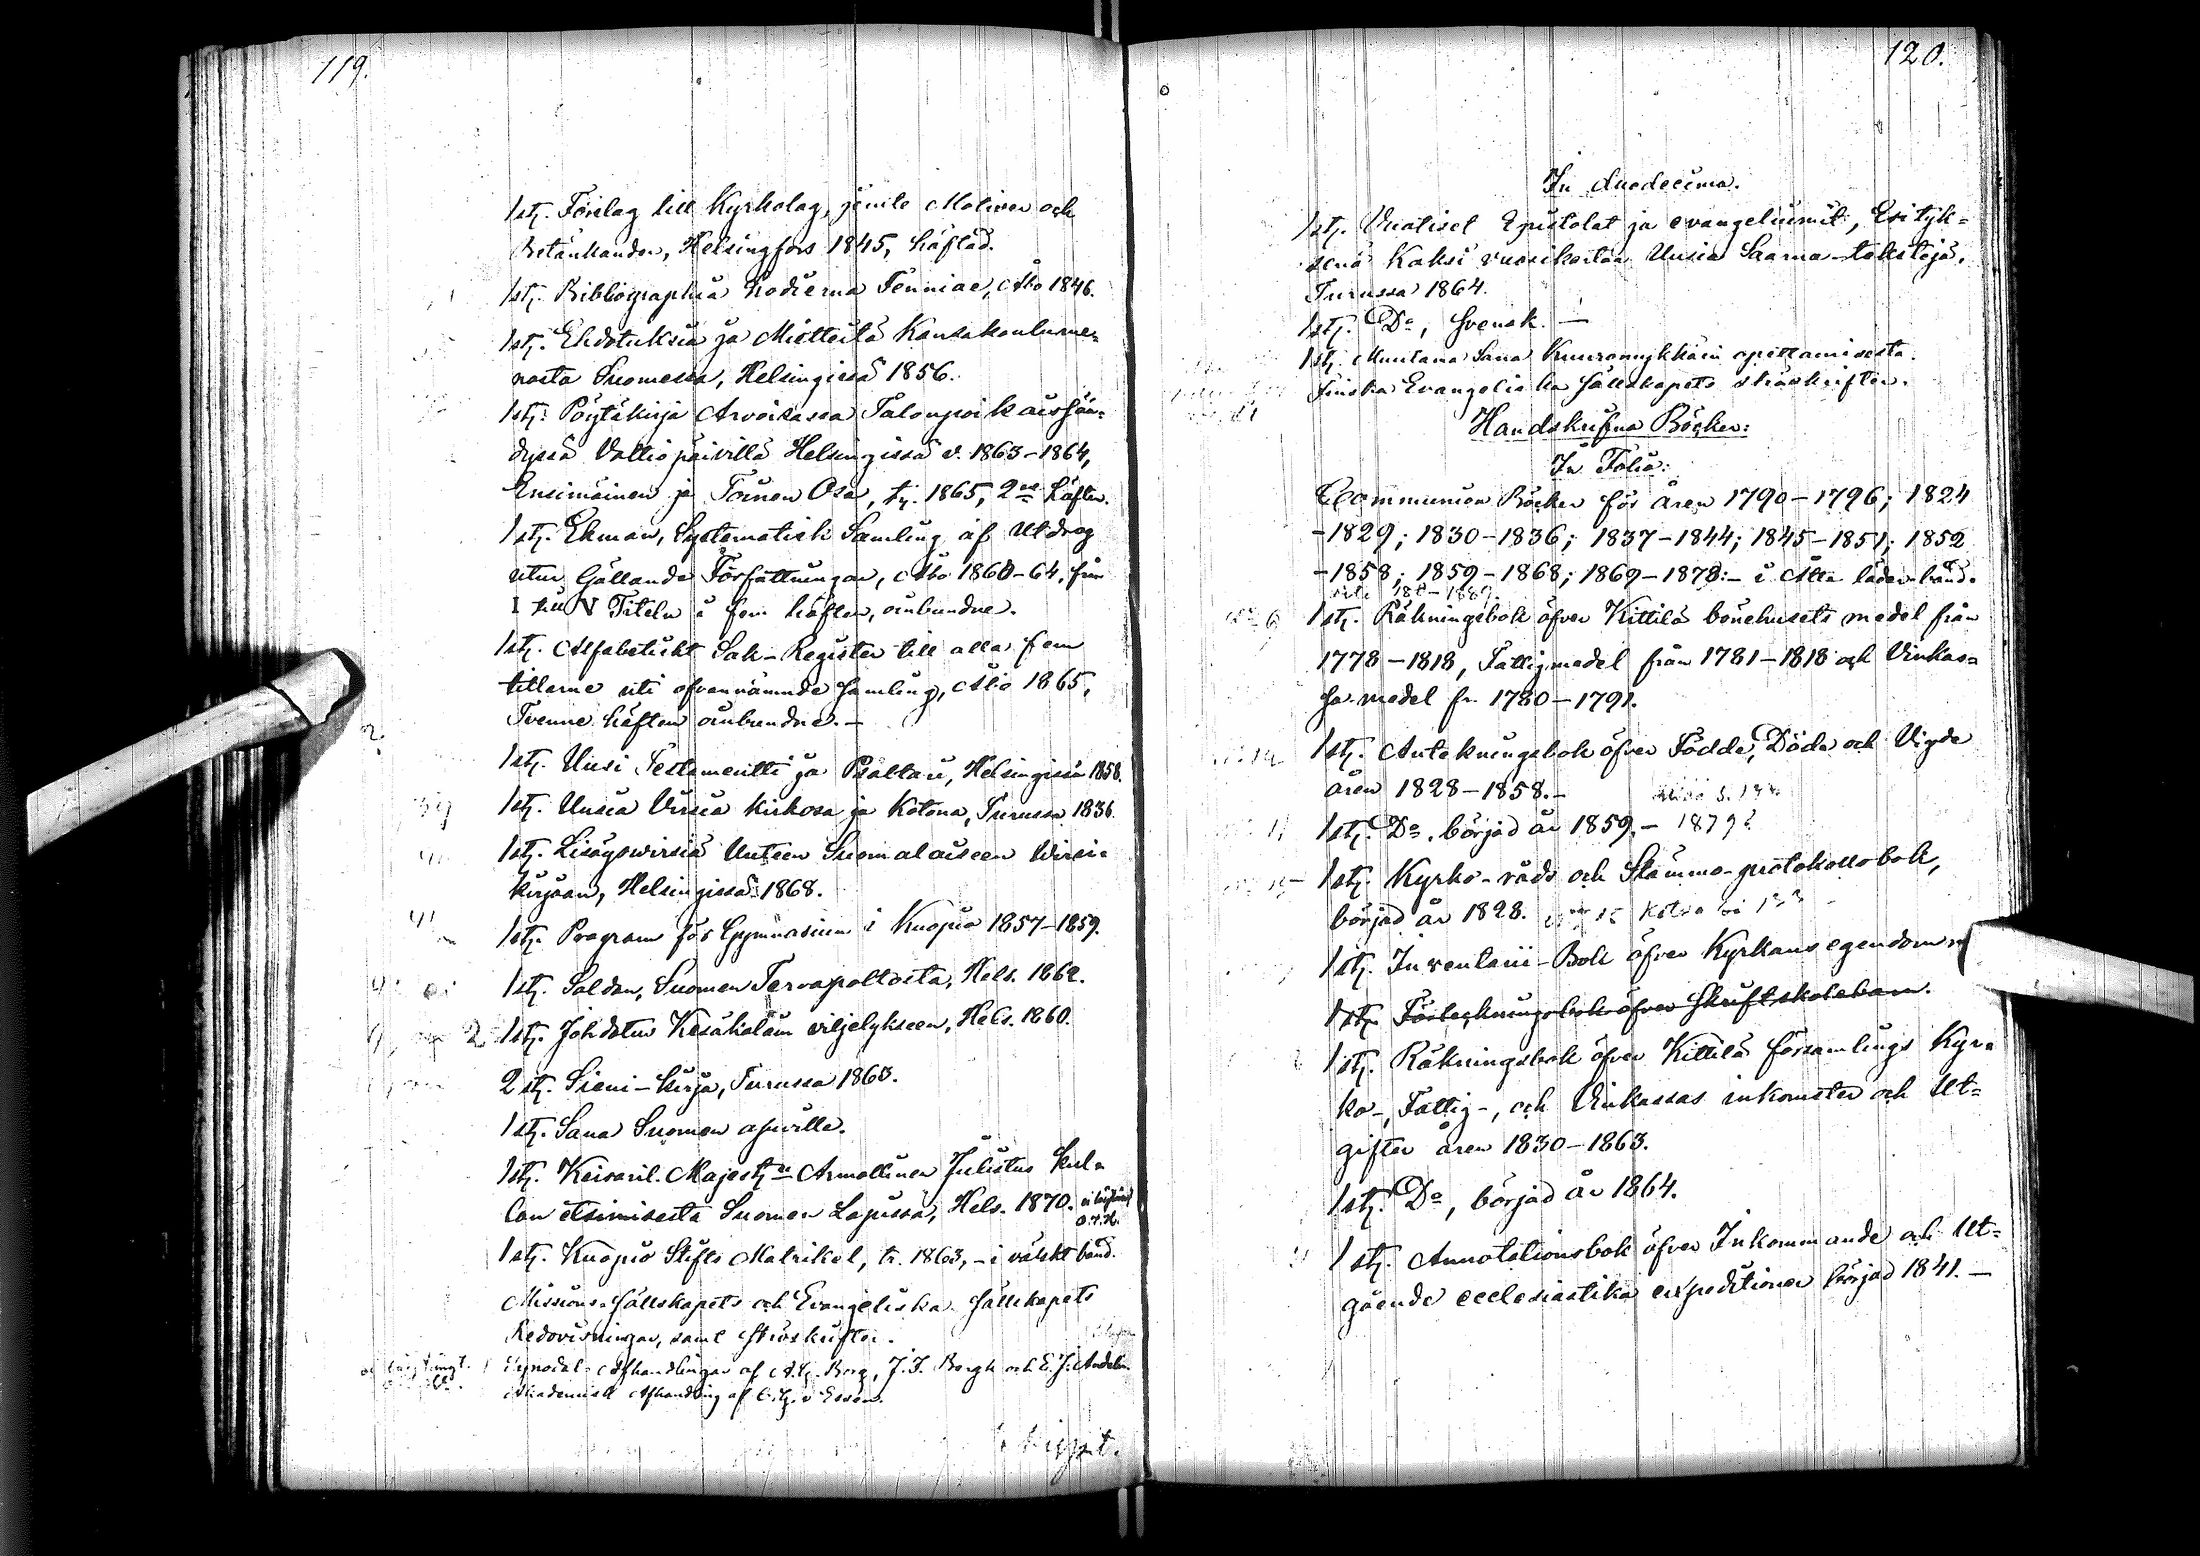 119.
1 st. Förslag till Kyrkolag, jemte Motiver och
Betänkanden, Helsingfors 1845, häftad.
1 st. Bibliographia hodierna Fenniae, Åbo 1846.
1 st. Ehdotuksia ja Mietteitä Kansakoulume-
nosta Suomessa, Helsingissä 1856.
1 st. Pöytäkirja Arvoisassa Talonpoikaissää-
dyssä Valtiopäivillä Helsingissä v. 1863-1864,
Ensimäinen ja Toinen Osa, tr. 1865, 2ne häften.
1 st. Ekman, Systematisk Samling af Utdrag
utur Gällande Författningar, Åbo 1860-64, från
I till V Titeln i fem häften, oinbundne.
1 st. Alfabetiskt Sak-Register till alla fem
titlarne uti ofvannämnde Samling, Åbo 1865,
Tvenne häften oinbundne. -
1 st. Uusi Testamentti ja Psaltari, Helsingissä 1858.
1 st. Uusia Virsiä kirkosa ja Kotona, Turussa 1836.
1 st. Lisäyswirsiä Uuteen Suomalaiseen Wirsi-
kirjaan, Helsingissä 1868.
1 st. Program för Gymnasium i Kuopio 1857-1859.
1 st. Soldan, Suomen Tervapoltosta, Hels. 1862.
1 st. Johdatus Kesäkalain viljelykseen, Hels. 1860.
2 st. Sieni-kirja, Turussa 1863.
1 st. Sana Suomen asuville.
1 st. Keisaril. Majest:n Armollinen Julistus kul-
lan etsimisestä Suomen Lapissa, Hels. 1870.
1 st. Kuopio Stifts Matrikel, tr. 1863, - i välskt band.
Missions-Sällskapets och Evangeliska Sällskapets
Redovisningar, samt Ströskrifter.
Synodal-Afhandlingar af A. G. Borg, J. F. Bergh och E. J. Andelin.
Akademisk Afhandling af C. G. v. Essen.
120.
In duodecimo.
1 st. Vuotiset Epistolat ja evangeliumit, Esityk-
senä Kaksi vuosikertaa Uusia Saarna-tekstejä,
Turussa 1864.
1 st. Do, Svensk. -
1 st. Muutama Sana Kuuromykkäin opettamisesta.
Finska Evangeliska Sällskapets ströskrifter.
Handskrifna Böcker:
In Folio:
Communion Böcker för åren 1790-1796; 1824
-1829; 1830-1836; 1837-1844; 1845-1851; 1852
-1858; 1859-1868; 1869-1878:- i Åtta läderband.
1 st. Räkningsbok öfver Kittilä bönehusets medel från
1778-1818, Fattigmedel från 1781-1818 och Vinkas-
sa medel fr. 1780-1791.
1 st. Antekningsbok öfver Födde, Döde och Vigde
åren 1828-1858. -
1 st. Do. börjad år 1859. - 1879?
1 st. Kyrko-råds och Stämmo-protokollsbok,
börjad år 1828.
1 st. Inventarii-Bok öfver Kyrkans egendom
1 st. Förteckningsbok öfver Skriftskolebarn.
1 st. Räkningsbok öfver Kittilä församlings Kyr-
ko-, Fattig-, och Vinkassas inkomster och Ut-
gifter åren 1830-1863.
1 st. Do, börjad år 1864.
1 st. Annotationsbok öfver Inkommande och Ut-
gående ecclesiastika expeditioner börjad 1841. -